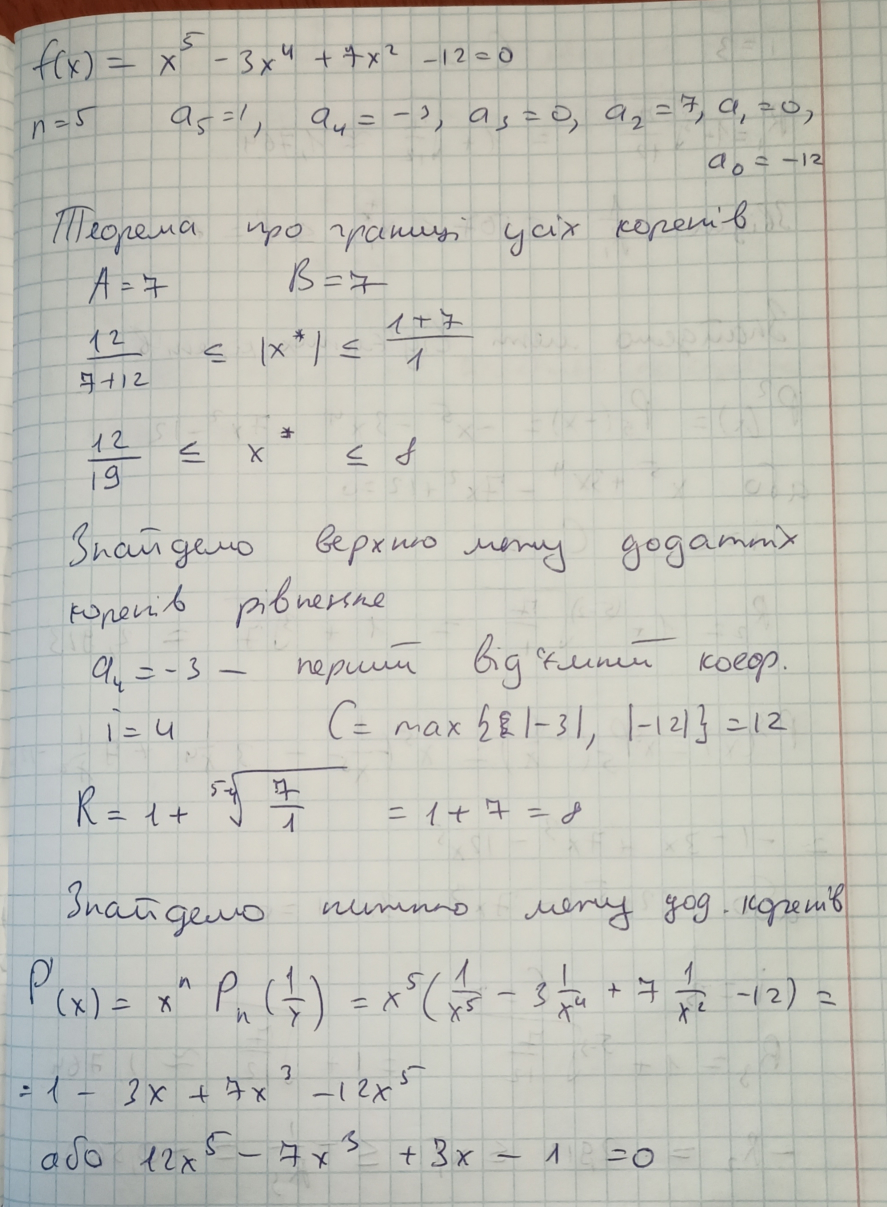 f(x) = x⁵ - 3x⁴ + 7x² - 12 = 0
n = 5 a₅ = 1, a₄ = -3, a₃ = 0, a₂ = 7, a₁ = 0,
a₀ = -12
Теорема про границі усіх коренів
A = 7 B = 7
12/(7+12) ≤ |x*| ≤ (1+7)/1
12/19 ≤ x* ≤ 8
Знайдемо верхню межу додатніх
коренів рівнення
a₄ = -3 — перший від'ємний коеф.
i = 4 C = max{|-3|, |-12|} = 12
R = 1 + ⁵⁻⁴√(7/1) = 1 + 7 = 8
Знайдемо нижню межу дод. коренів
P¹(x) = xⁿ Pₙ(1/x) = x⁵(1/x⁵ - 3 1/x⁴ + 7 1/x² - 12) =
= 1 - 3x + 7x³ - 12x⁵
або 12x⁵ - 7x³ + 3x - 1 = 0